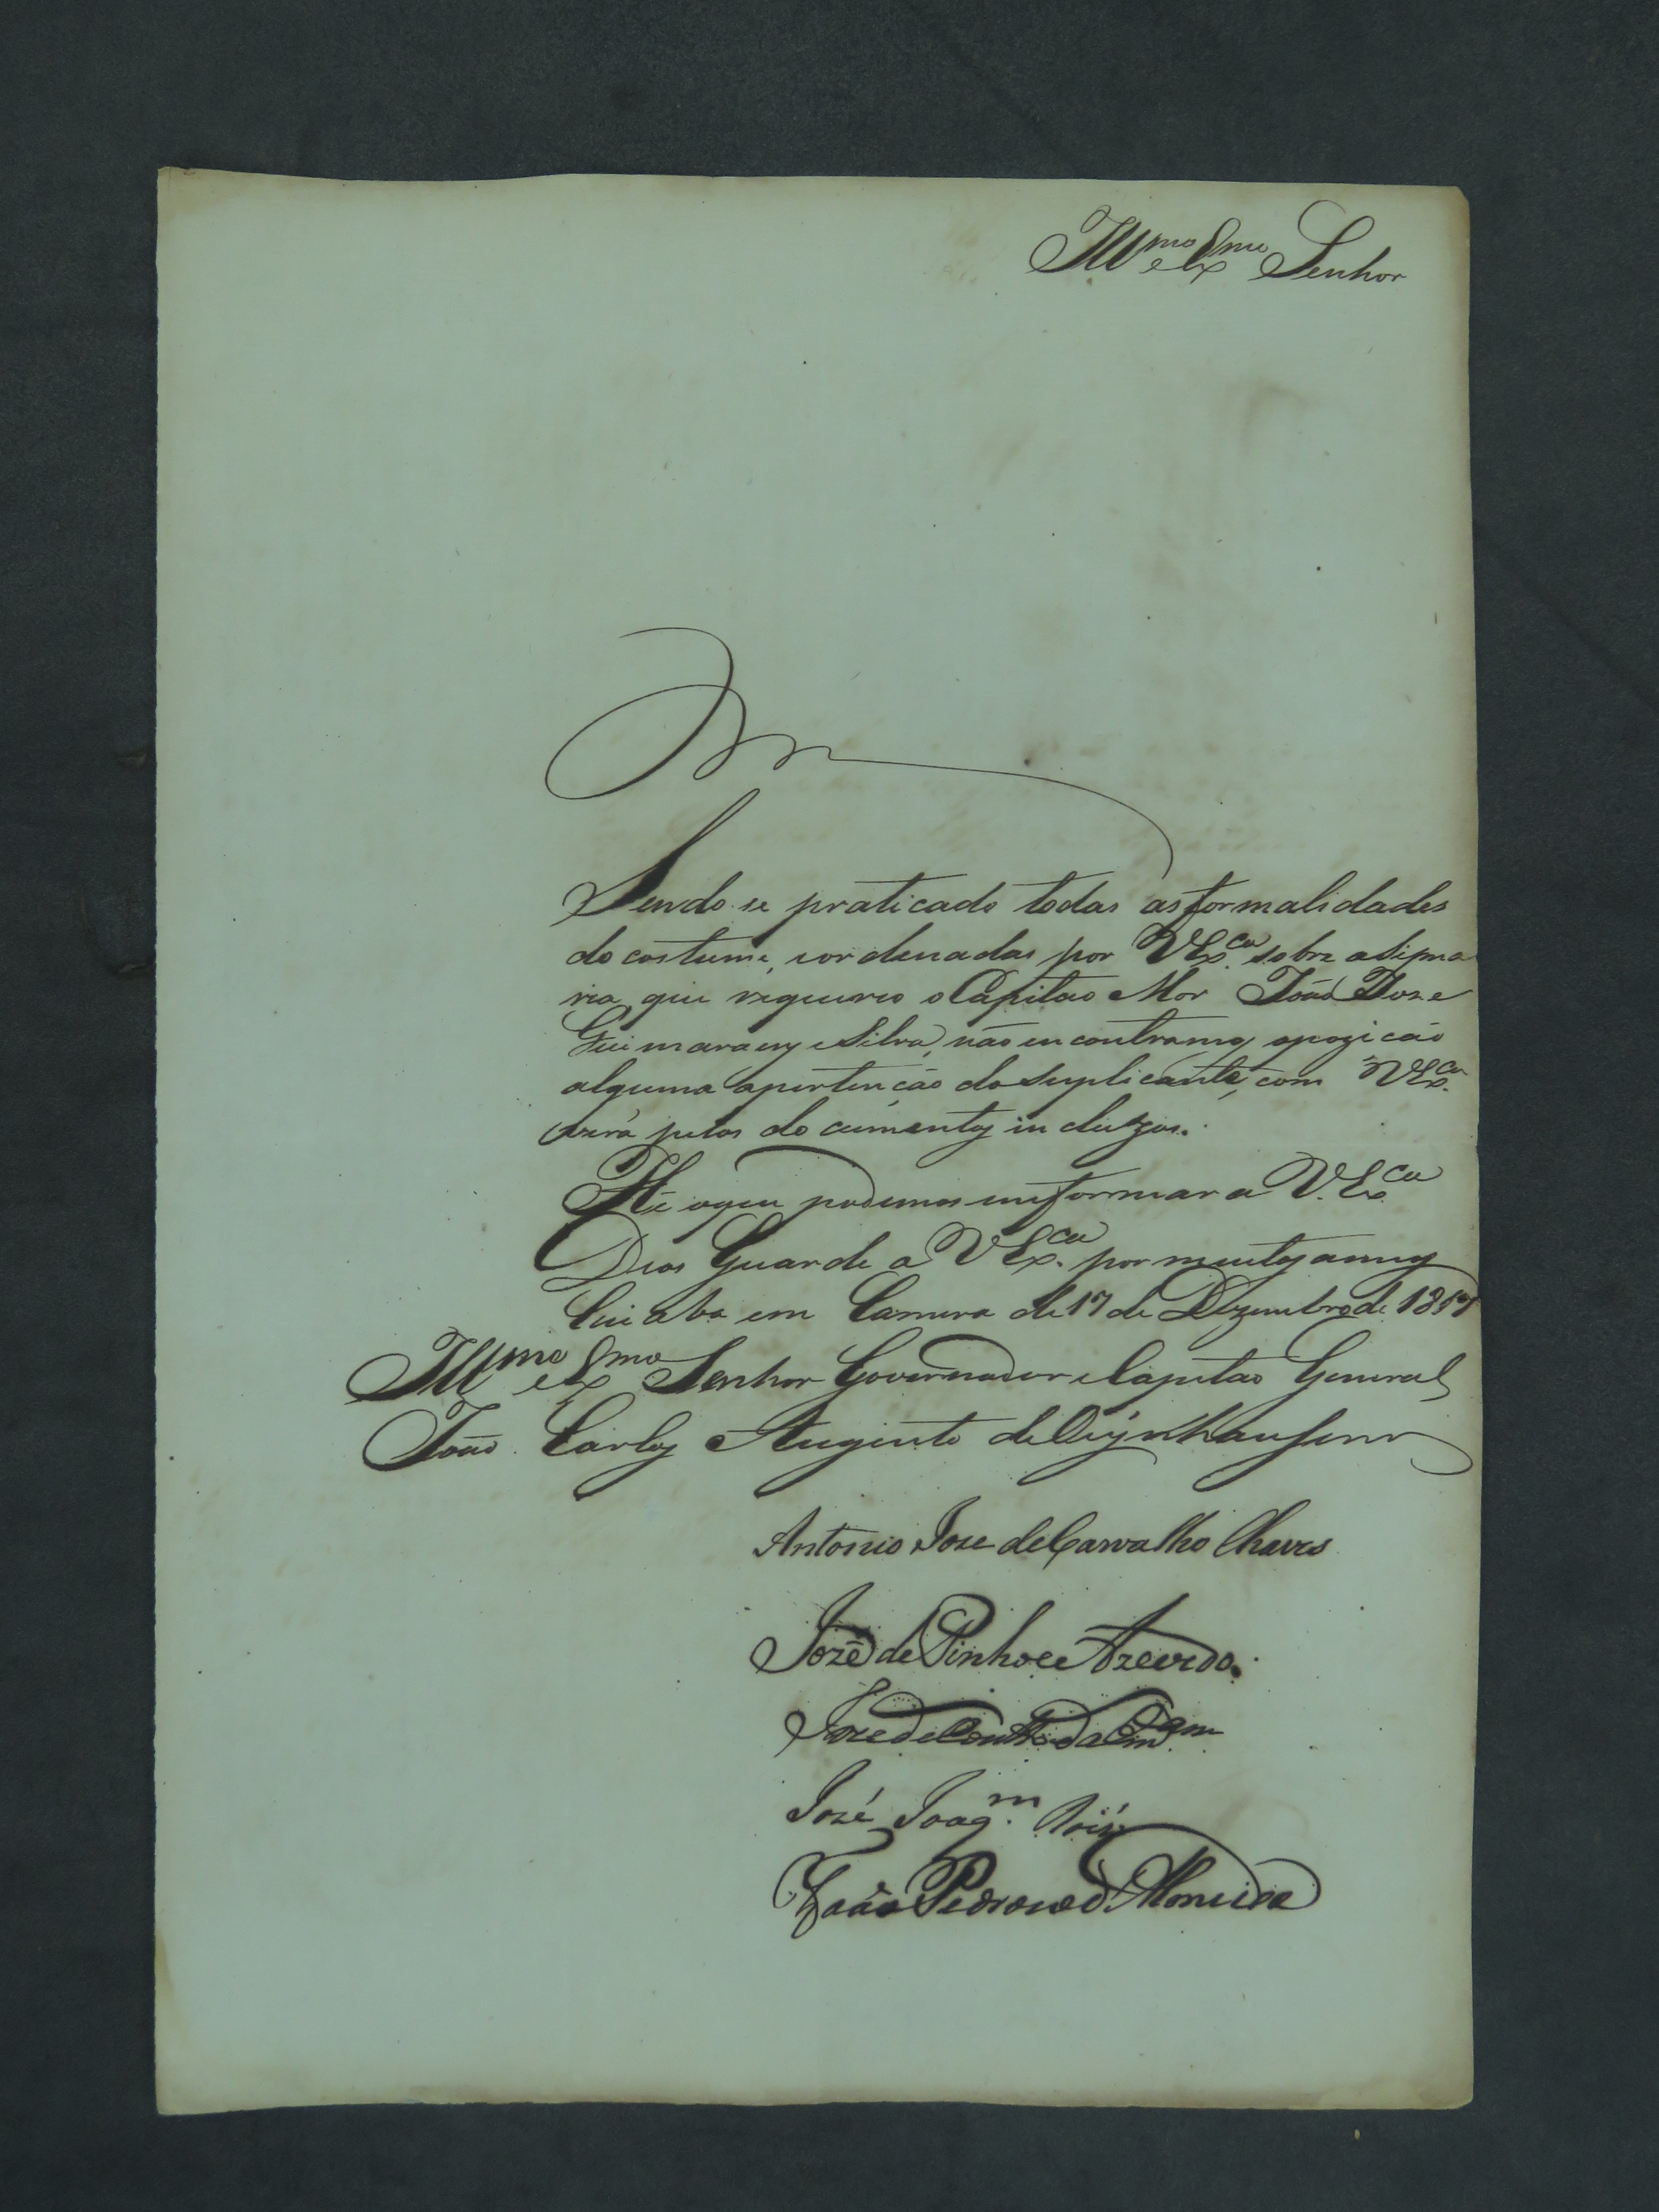 Ill<sup>mo</sup> e Ex<sup>mo</sup> Senhor
Sendo se praticado todas as formalidades
do costume, e ordenadas por VEx.<sup>ca</sup> sobre a Sisma
ria que requereo o Capitao Mor João Joze
Guimaraens e Silva, não encontramos opozicão
alguma apertenção do Suplicante, com VEx.<sup>ca</sup>
verá pelos documentos incluzos.
He oque podemos informar a V.Ex.<sup>ca</sup>
Deos Guarde a VEx.<sup>ca</sup> por muitos annos
Cuiaba em Camera de 17 de Dezembro de 1817
Ill<sup>mo</sup> e Ex<sup>mo</sup> Senhor Governador e Capitao General
João Carlos Augusto de Oÿnhausenn
Antonio Joze de Carvalho Chaves
Jozé de Pinho e Azevedo.
Joze de
José Joaq.<sup>m</sup>
João Pedroso d'Almeida